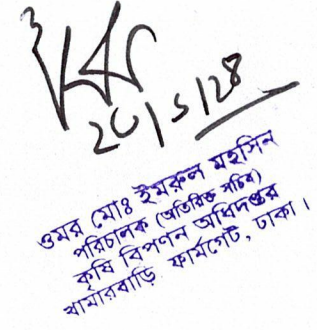 ওমর মোঃ ইমরুল মহসিন
পরিচালক (অতিরিক্ত সচিব)
কৃষি বিপণন অধিদপ্তর
খামারবাড়ি ফার্মগেট, ঢাকা।